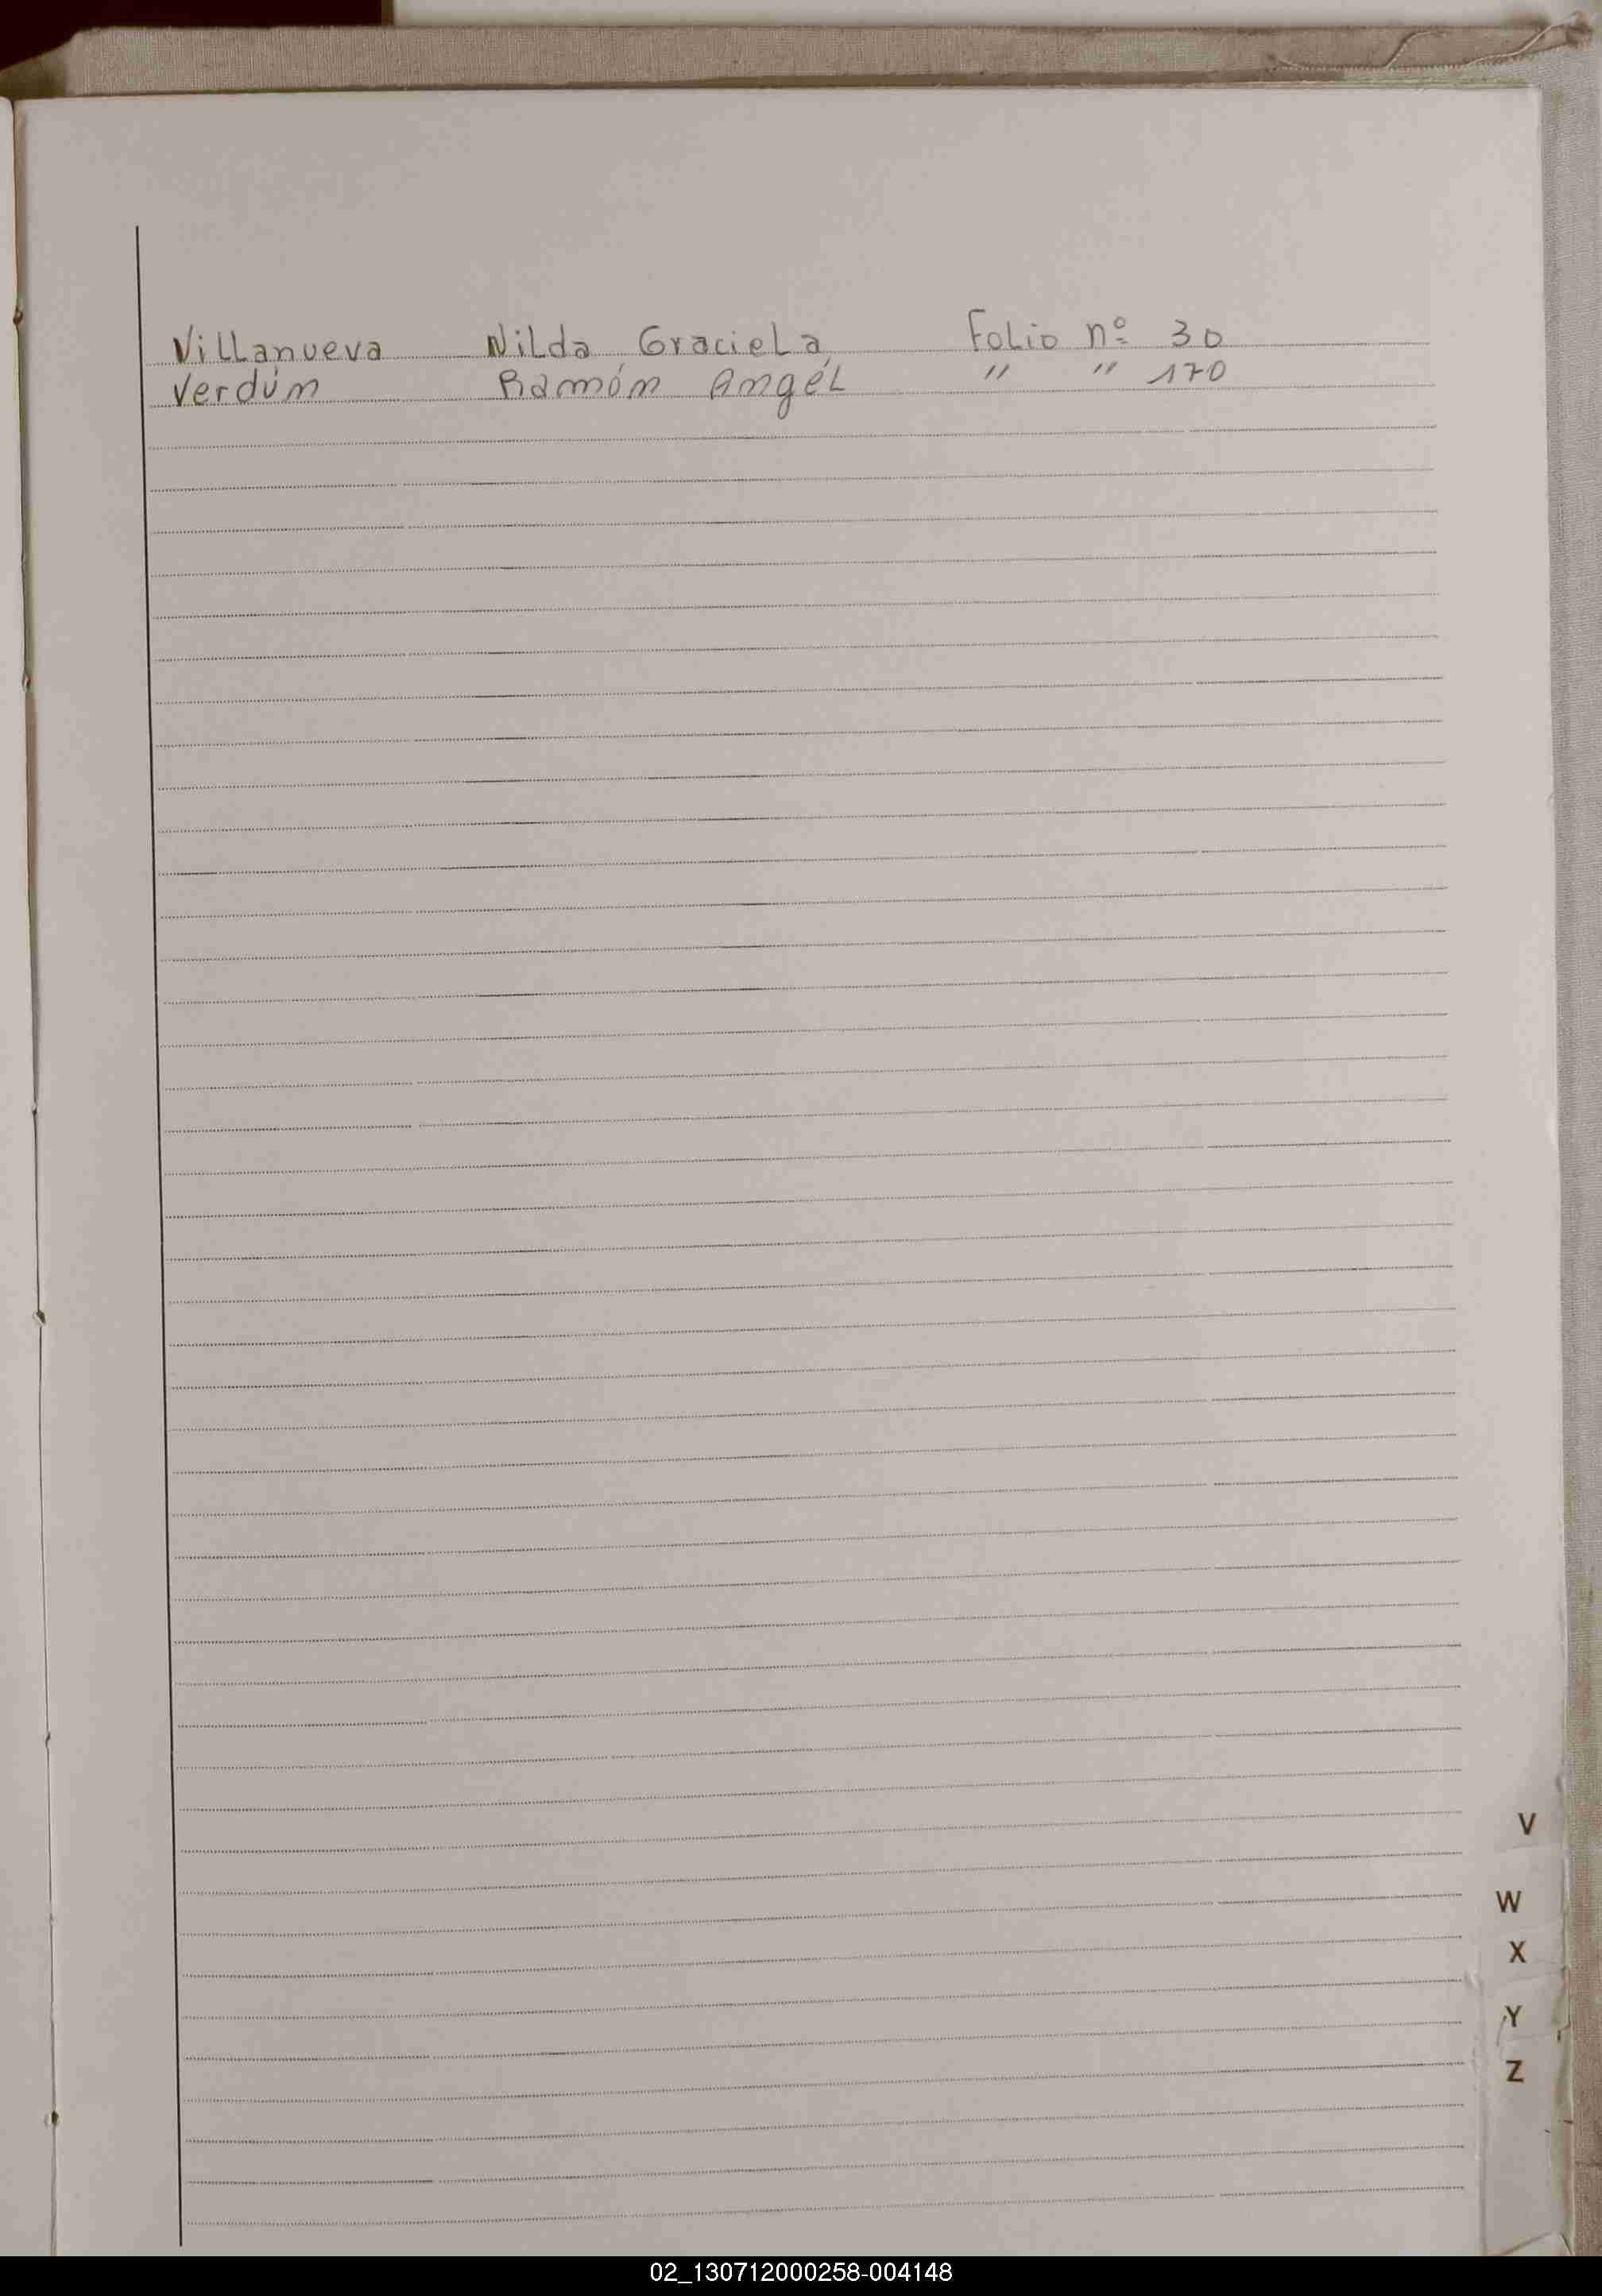 Villanueva Nilda Graciela Folio nº 30
Verdúm Ramón Angél " " 170
V
W
X
Y
Z
02_130712000258-004148